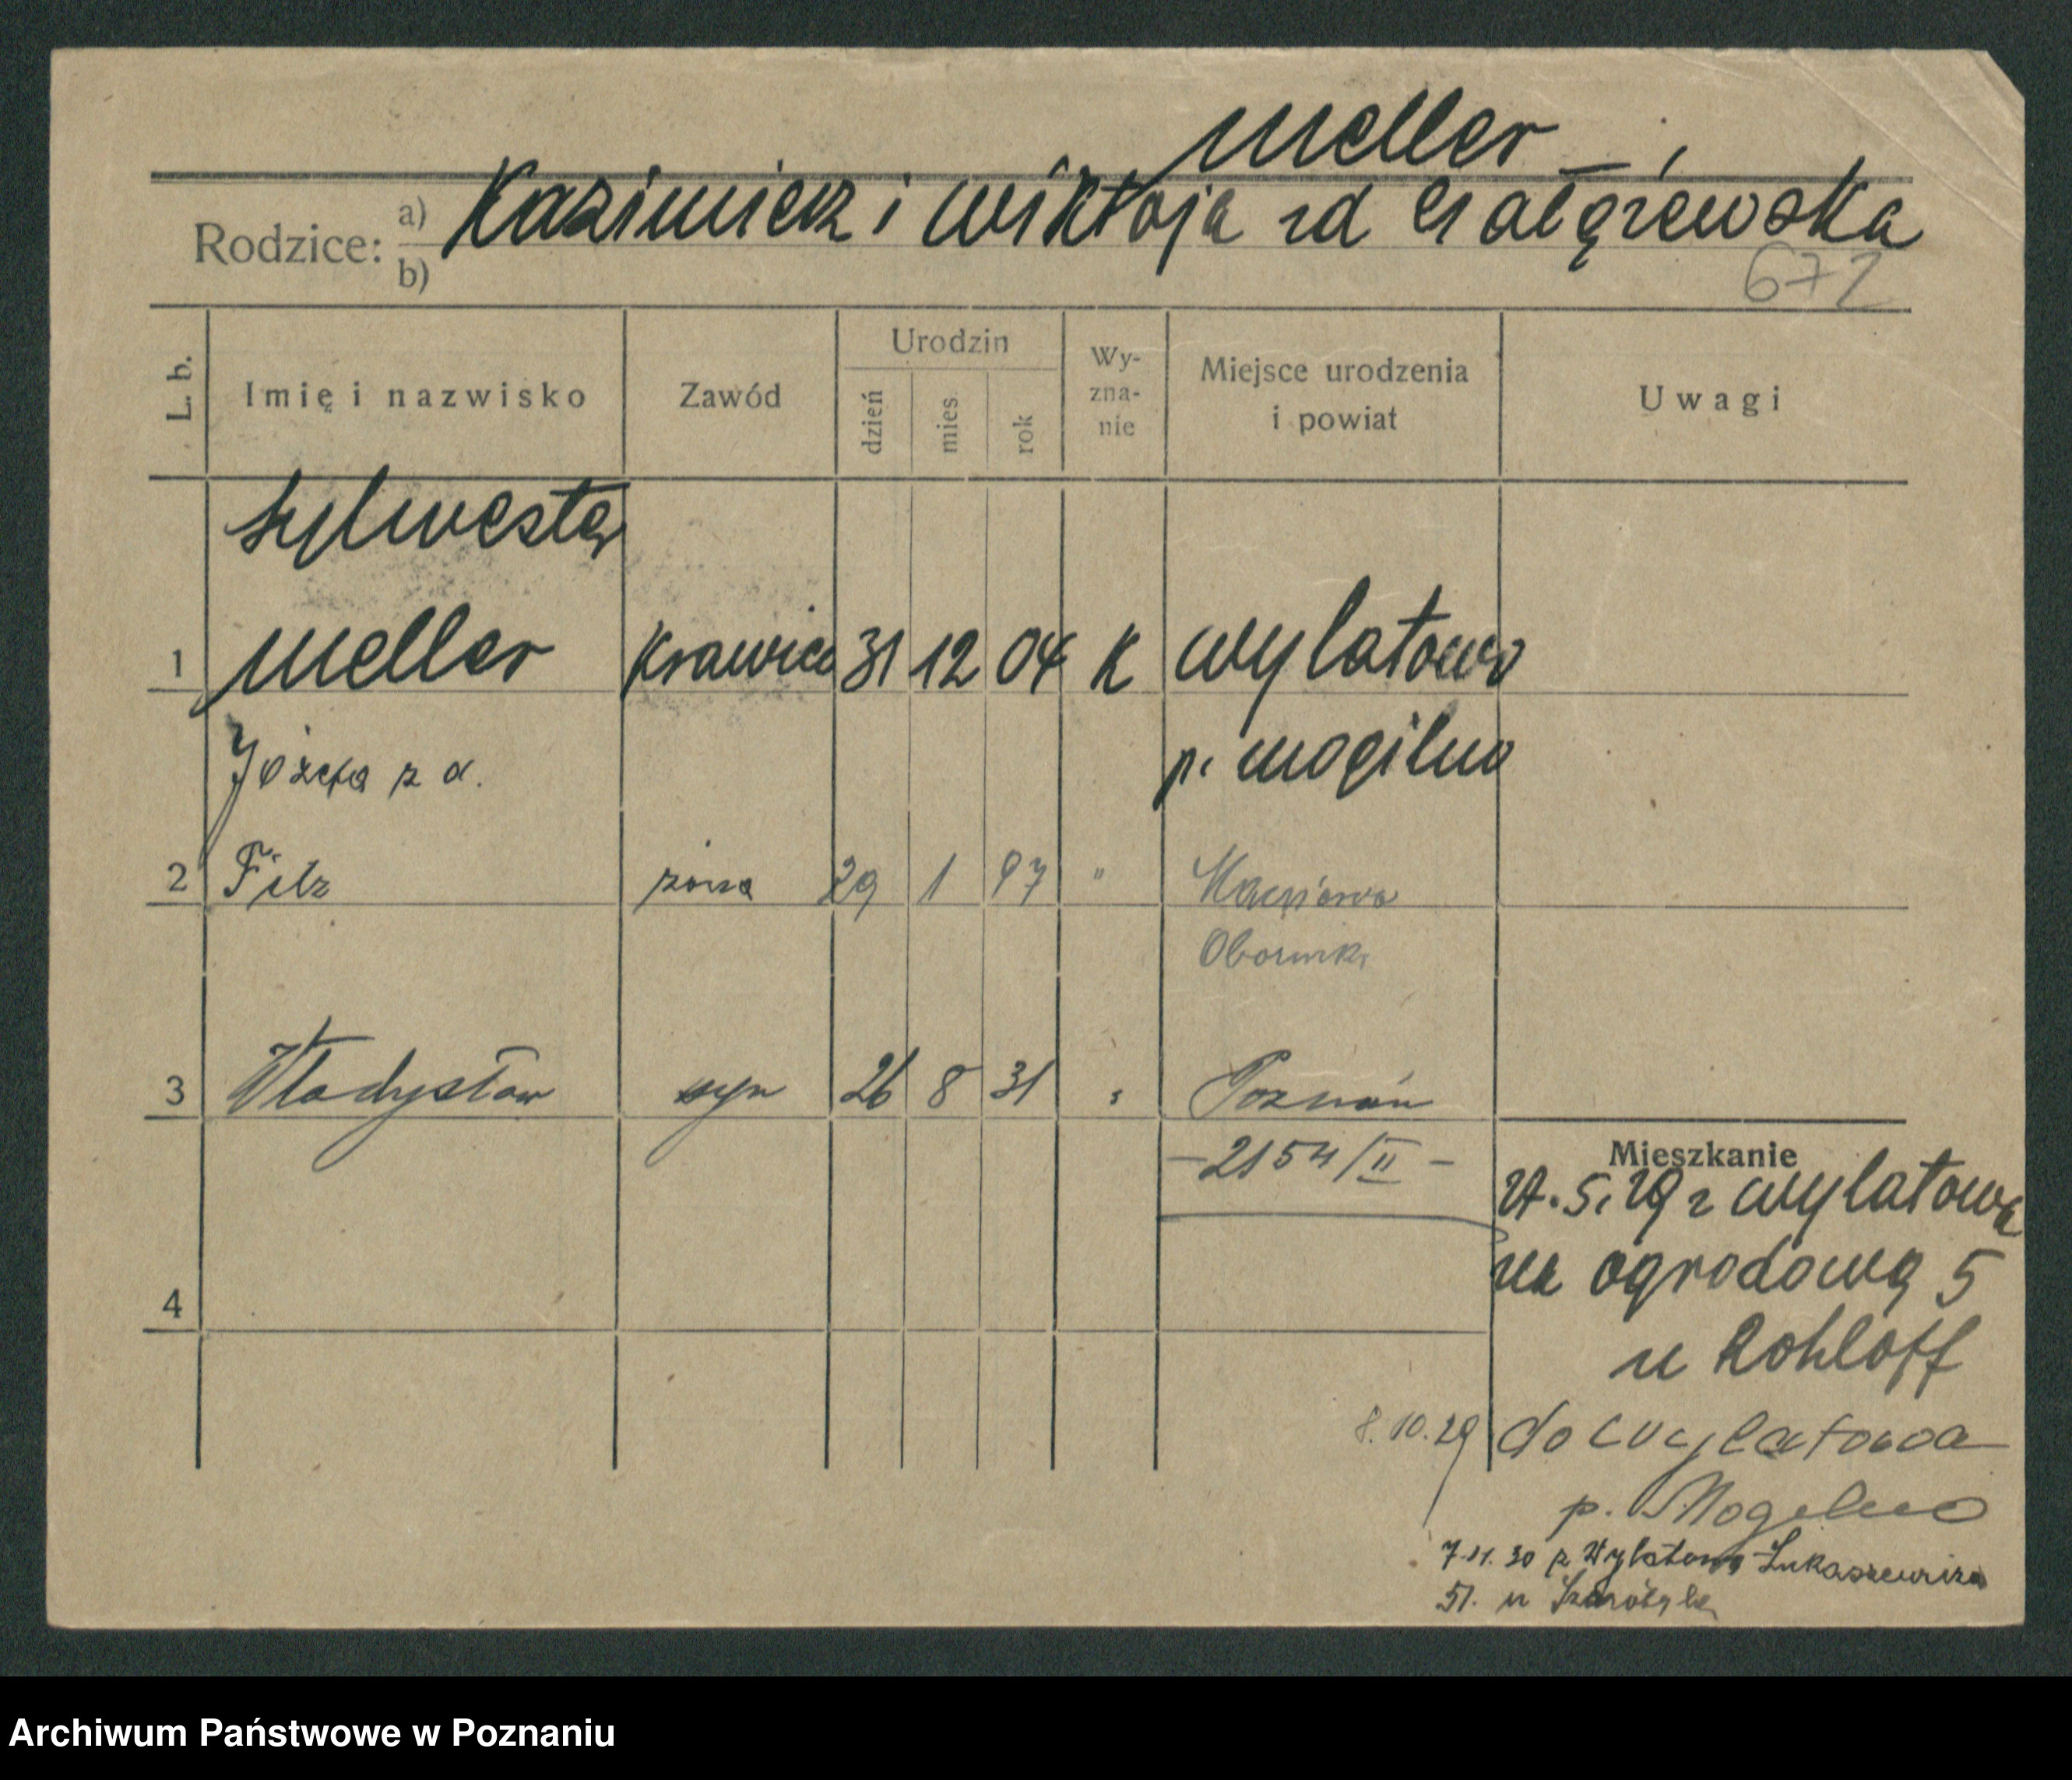 Meller
Rodzice: a) Kazimierz i Wiktorja zd
b)
672
L. b.
Imię i nazwisko
Zawód
Urodzin
dzień
mies.
rok
Wy-
zna-
nie
Miejsce urodzenia
i powiat
Uwagi
Sylwester
1 Meller Krawiec 31 12 04 K Wylatowo
p. Mogilno
Józefa z d.
2 Filz żona 29 1 97 "
Oborniki
3 Władysław syn 26 8 31 " Poznań
- 2154/II -
4
Mieszkanie
27.5.29 z Wylatowa
na Ogrodową 5
u Rohloff
8.10.29 do Wylatowa
p. Mogilno
7.11.30 z Wylatowa Łukaszewicza
51. u
Archiwum Państwowe w Poznaniu